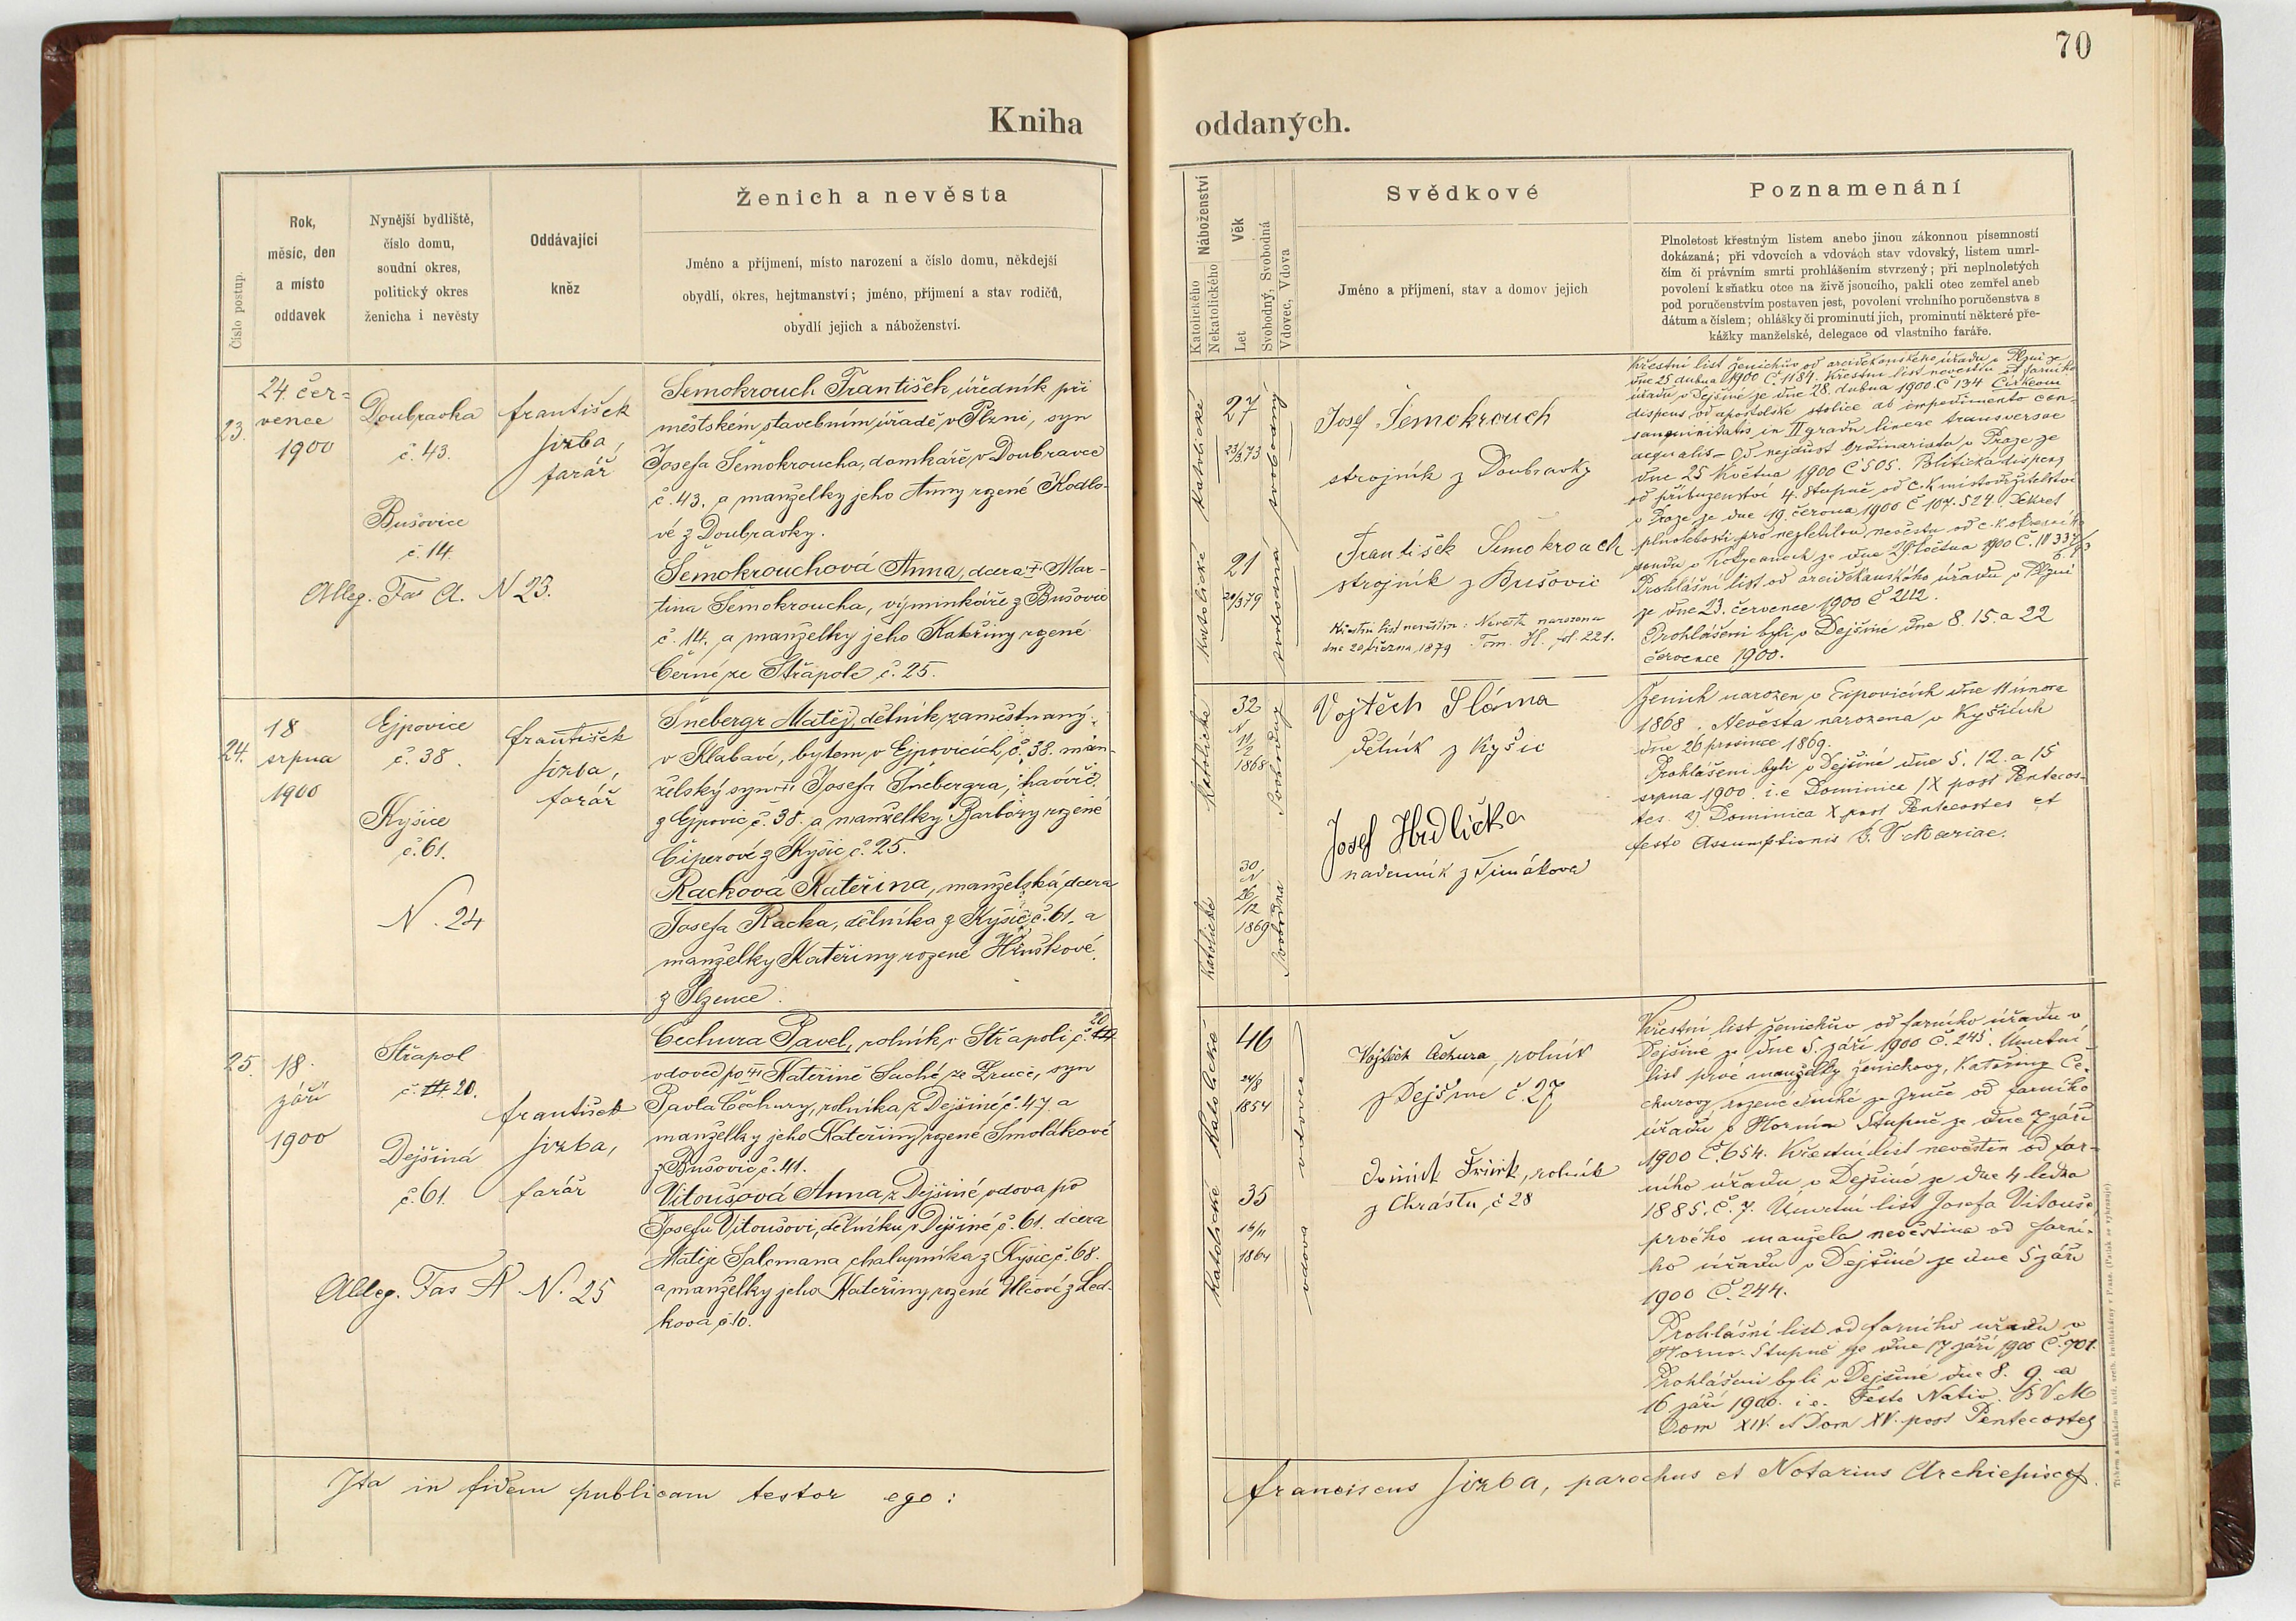 70
Kniha oddaných.
Číslo postup.
Rok,
měsíc, den
a místo
oddavek
Nynější bydliště,
číslo domu,
soudní okres,
politický okres
ženicha i nevěsty
Oddávající
kněz
Ženich a nevěsta
Jméno a příjmení, místo narození a číslo domu, někdejší
obydlí, okres, hejtmanství; jméno, příjmení a stav rodičů,
obydlí jejich a náboženství.
Náboženství
Katolického
Nekatolického
Věk
Let
Svobodný, Svobodná
Vdovec, Vdova
Svědkové
Jméno a příjmení, stav a domov jejich
Poznamenání
Plnoletost křestným listem anebo jinou zákonnou písemností
dokázaná; při vdovcích a vdovách stav vdovský, listem umrl-
čím či právním smrti prohlášením stvrzený; při neplnoletých
povolení k sňatku otce na živě jsoucího, pakli otec zemřel aneb
pod poručenstvím postaven jest, povolení vrchního poručenstva s
dátum a číslem; ohlášky či prominutí jich, prominutí některé pře-
kážky manželské, delegace od vlastního faráře.
23.
24. čer-
vence
1900
Doubravka
č. 43.
Bušovice
č. 14.
František
Jirba,
farář
Alleg. Fas A. N 23.
Šemokrouch František úředník při
městském stavebním úřadě v Plzni, syn
Josefa Šemokroucha, domkáře v Doubravce
č. 43. a manželky jeho Anny rozené Kodlo-
vé z Doubravky.
Šemokrouchová Anna, dcera Mar-
tina Šemokroucha, výminkáře z Bušovic
č. 14. a manželky jeho Kateřiny rozené
Černé ze Střapole č. 25.
katolické
27
23/3 73
svobodný
katolické
21
20/3 79
svobodná
Josef Šemokrouch
strojník z Doubravky
František Šemokrouch
strojník z Bušovic
Křestní list nevěstin: Nevěsta narozena
dne 20 března 1879 Tom. H. fol. 221.
Křestní list ženichův od arciděkanského úřadu v Plzni ze
dne 25 dubna 1900 Č. 1184. Křestní list nevěstin od farního
úřadu v Dejšině ze dne 28. dubna 1900 Č 134 Církevní
dispens od apoštolské stolice ab impedimento con-
sanguinitatis in II gradu lineae transversae
aequalis – Od nejdůst. Ordinariátu v Praze ze
dne 25 Května 1900 Č 505. Politická dispens
od příbuzenství 4. stupně od c. k. místodržitelství
v Praze ze dne 19. června 1900 Č 107.524. Dekret
plnoletosti pro nezletilou nevěstu od c. k. okresního
soudu v Rokycanech ze dne
Prohlášní list od arciděkanského úřadu v Plzni
ze dne 23. července 1900 Č 2112.
Prohlášeni byli v Dejšině dne 8. 15. a 22
července 1900.
24.
18
srpna
1900
Ejpovice
č. 38.
Kyšice
č. 61.
N. 24
František
Jirba,
farář
Šnebergr Matěj, dělník zaměstnaný
v Klabavě, bytem v Ejpovicích, č. 38. man-
želský syn Josefa Šnebergra, havíře
z Ejpovic č. 38. a manželky Barbory rozené
Čiperové z Kyšic č. 25.
Racková Kateřina, manželská dcera
Josefa Racka, dělníka z Kyšic č. 61. a
manželky Kateřiny rozené Hruškové
z Plzence.
Katolické
32
N
11/2
1868
Svobodný
Katolické
30
N
26/12
1869
Svobodná
Vojtěch Sláma
dělník z Kyšic
Josef Hrdlička
nadenník z Timákova
Ženich narozen v Ejpovicích dne 11 února
1868. Nevěsta narozena v Kyšicích
dne 26 prosince 1869.
Prohlášeni byli v Dejšině dne 5. 12. a 15
srpna 1900. i. e Dominica IX post Pentecos-
tes. 2) Dominica X post Pentecostes et
festo Assumptionis B. V. Mariae.
25.
18.
září
1900
Střapol
č. 20.
Dejšina
č. 61.
František
Jirba,
farář
Alleg. Fas A N. 25
Čechura Pavel, rolník v Střapoli č. 20
vdovec po Kateřině Suché ze Zruče, syn
Pavla Čechury, rolníka z Dejšiné č. 47. a
manželky jeho Kateřiny rozené Smolákové
z Bušovic č. 41.
Vitoušová Anna z Dejšiné, vdova po
Josefu Vitoušovi, dělníku v Dejšiné č. 61. dcera
Matěje Salomana chalupníka z Kyšic č. 68.
a manželky jeho Kateřiny rozené Vlčové z Led-
kova č. 10.
Katolické
46
24/8
1854
vdovec
Katolické
35
16/11
1864
vdova
Vojtěch Čechura, rolník
z Dejšiné č. 27
rolník
z Chrástu, č 28
Křestní list ženichův od farního úřadu v
Dejšině ze dne 5. září 1900 Č. 245. Úmrtní
list prvé manželky ženichovy, Kateřiny Če-
churovy rozené Suché ze Zruče od farního
úřadu v Horním Stupně ze dne 7 září
1900 Č. 654. Křestní list nevěstin od far-
ního úřadu v Dejšině ze dne 4 ledna
1885. Č. 7. Úmrtní list Josefa Vitouše,
prvého manžela nevěstina od farní-
ho úřadu v Dejšině ze dne 5 září
1900 Č. 244.
Prohlášní list od farního uřadu v
Horno-Stupně ze dne 17 září 1900 Č. 701.
Prohlášeni byli v Dejšině dne 8. 9. a
16 září 1900. i. e. Festo Nativ. B V M
Dom XIV. et Dom XV. post Pentecostes
Ita in fidem publicam testor ego:
Franciscus Jirba, parochus et Notarius Archiepiscop.